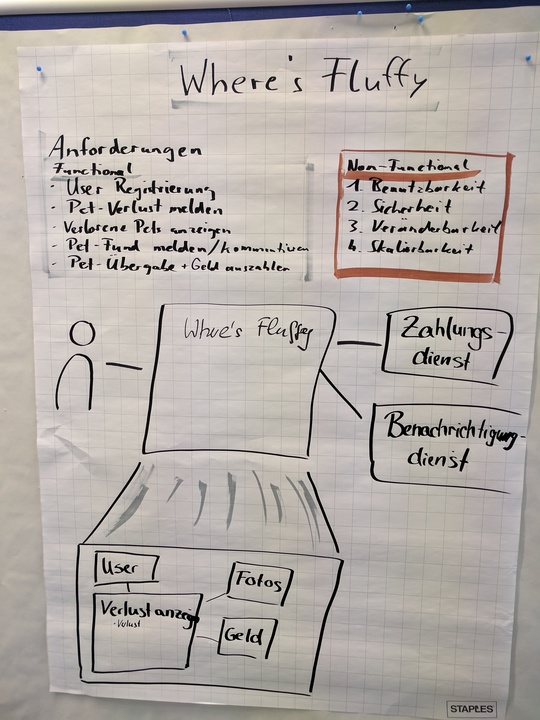 Where's Fluffy
Anforderungen
Functional
- User Registrierung
- Pet-Verlust melden
- Verlorene Pets anzeigen
- Pet-Fund melden/kommunizieren
- Pet-Übergabe + Geld auszahlen
Non-Functional
1. Benutzbarkeit
2. Sicherheit
3. Veränderbarkeit
4. Skalierbarkeit
Where's Fluffy
Zahlungs-
dienst
Benachrichtigung-
dienst
User
Fotos
Verlustanzeige
Geld
STAPLES